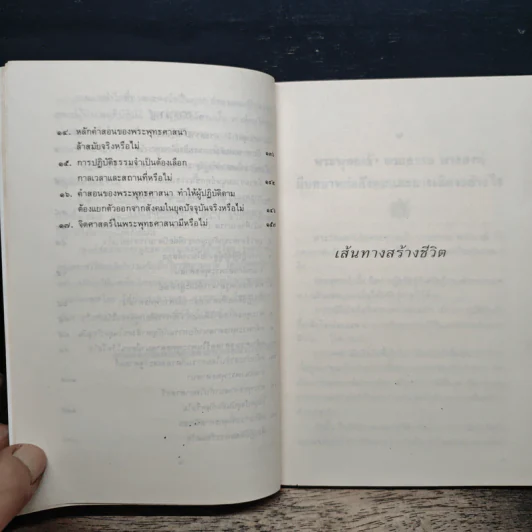 ๑๔. หลักคำสอนของพระพุทธศาสนา
ล้าสมัยจริงหรือไม่
๑๕. การปฏิบัติธรรมจำเป็นต้องเลือก
กาลเวลาและสถานที่หรือไม่
๑๖. คำสอนของพระพุทธศาสนา ทำให้ผู้ปฏิบัติตาม
ต้องแยกตัวออกจากสังคมในยุคปัจจุบันจริงหรือไม่
๑๗. จิตศาสตร์ในพระพุทธศาสนามีหรือไม่
เส้นทางสร้างชีวิต